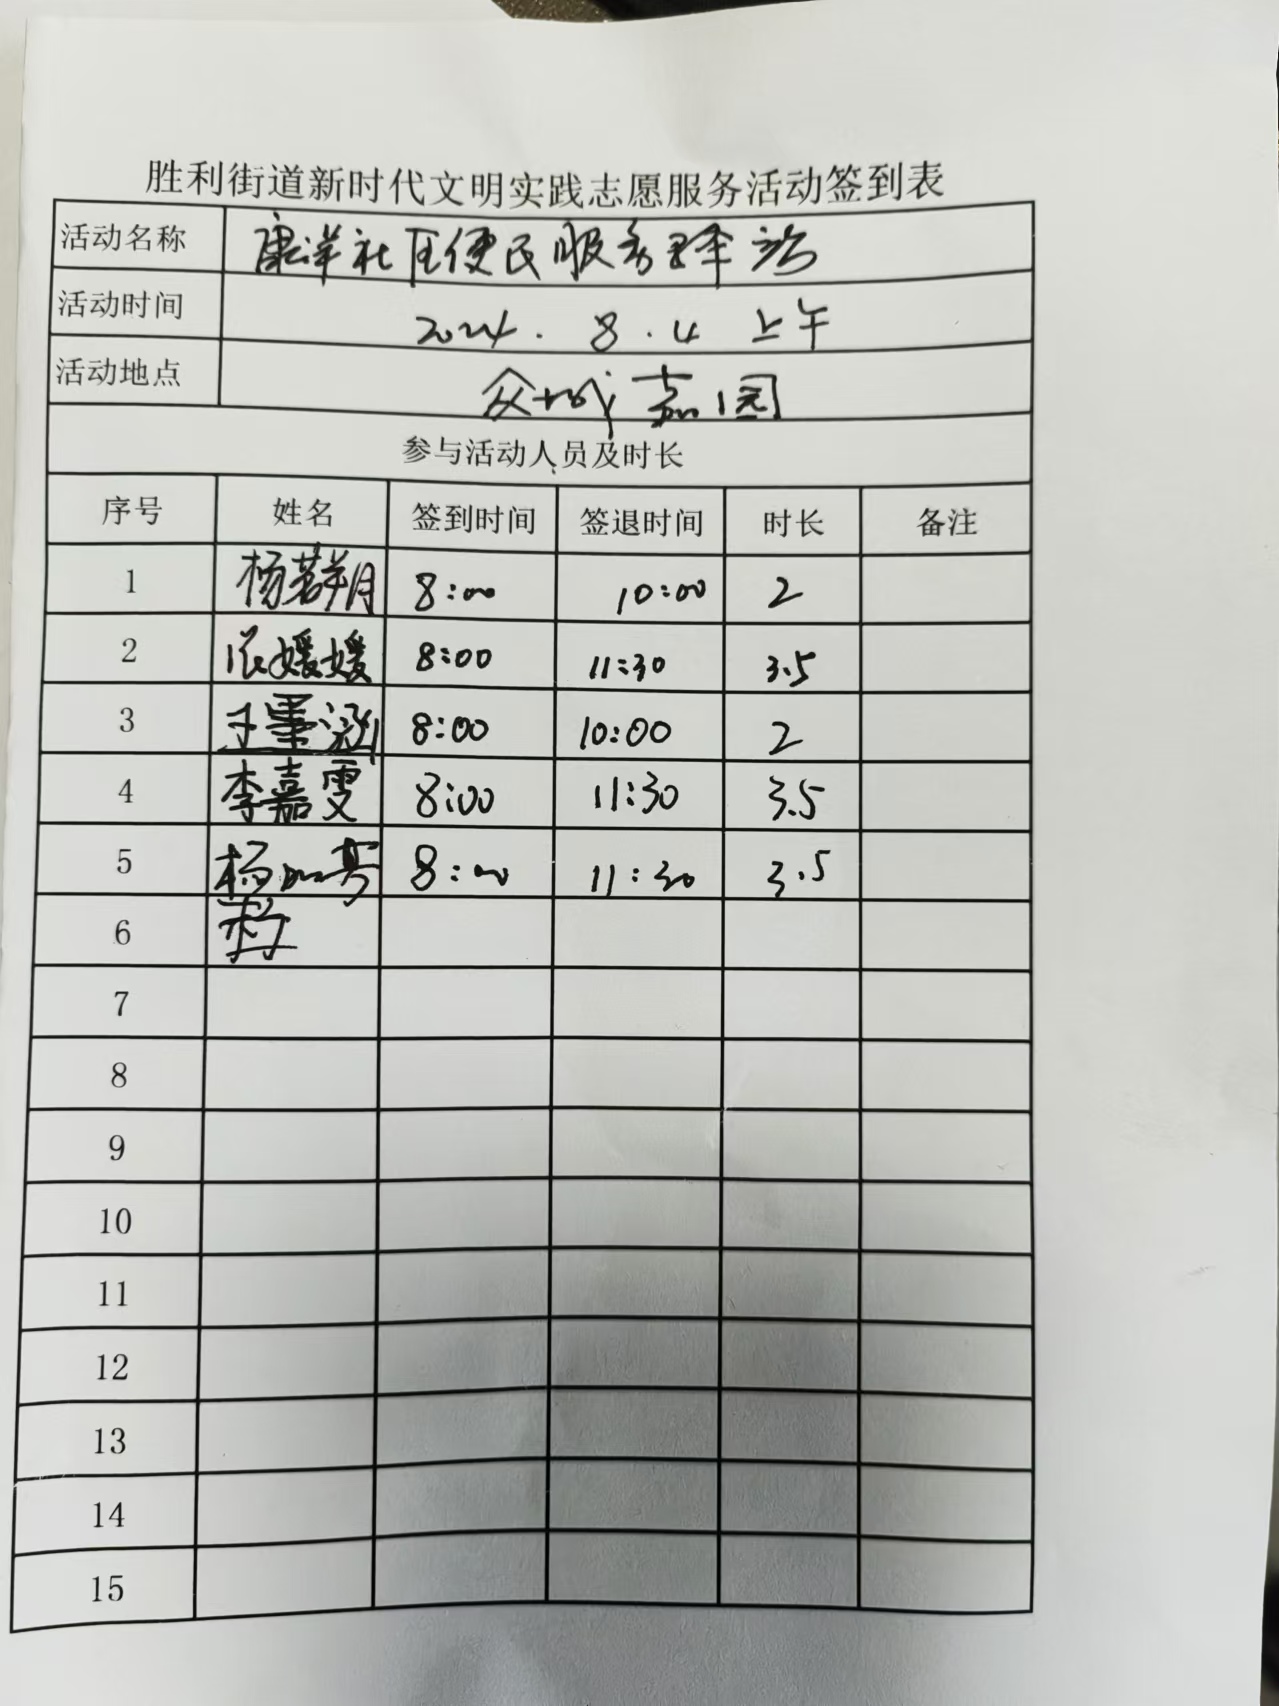 胜利街道新时代文明实践志愿服务活动签到表
活动名称 康洋社区便民服务驿站
活动时间 2024.8.4 上午
活动地点 众城嘉园
参与活动人员及时长
序号 姓名 签到时间 签退时间 时长 备注
1 杨若朔 8:00 10:00 2
2 张媛媛 8:00 11:30 3.5
3 王墨涵 8:00 10:00 2
4 李嘉雯 8:00 11:30 3.5
5 杨 8:00 11:30 3.5
6
7
8
9
10
11
12
13
14
15